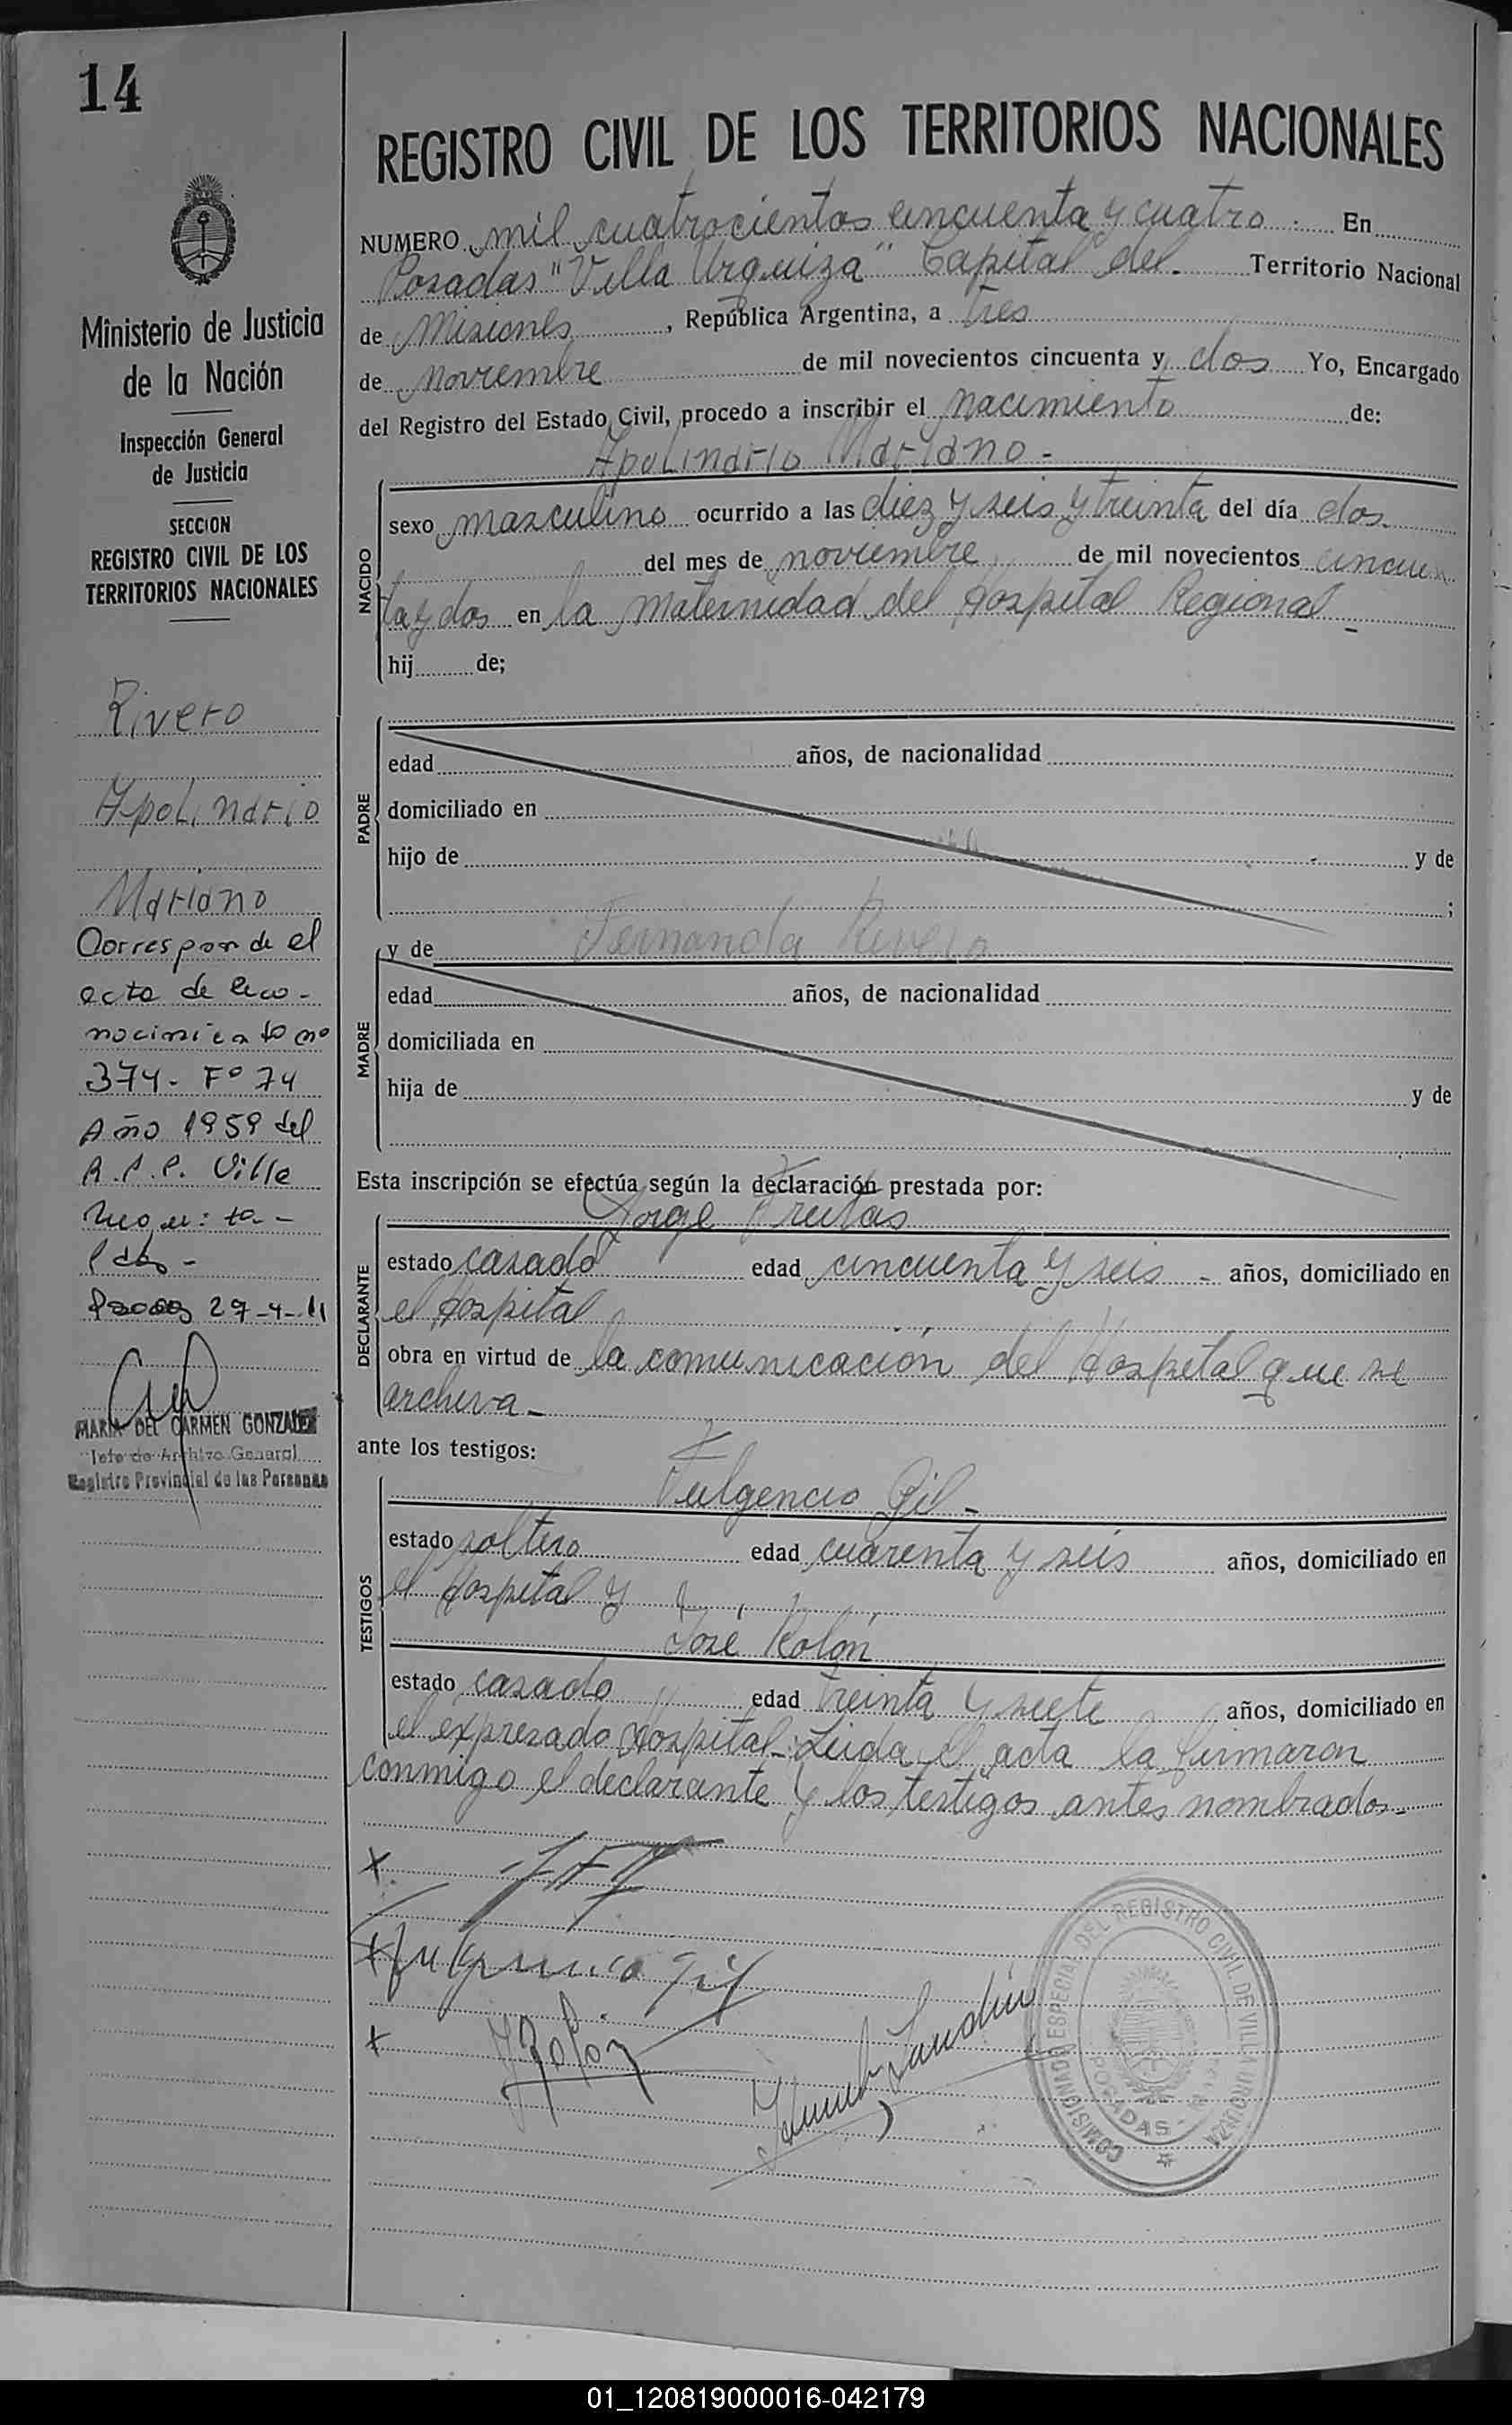 14
Ministerio de Justicia
de la Nación
Inspección General
de Justicia
SECCION
REGISTRO CIVIL DE LOS
TERRITORIOS NACIONALES
Rivero
Apolinario
Mariano
Corresponde el
acta de reco-
nocimiento nº
374- Fº 74
Año 1959 del
R.P.P. Villa
Pdas-
29-4-11
MARIA DEL CARMEN GONZALEZ
Jefe de Archivo General
Registro Provincial de las Personas
REGISTRO CIVIL DE LOS TERRITORIOS NACIONALES
NUMERO mil cuatrocientos cincuenta y cuatro. En
Posadas "Villa Urquiza" Capital del Territorio Nacional
de Misiones, República Argentina, a tres
de noviembre de mil novecientos cincuenta y dos Yo, Encargado
del Registro del Estado Civil, procedo a inscribir el nacimiento de:
Apolinario Mariano-
NACIDO
sexo masculino ocurrido a las diez y seis y treinta del día dos
del mes de noviembre de mil novecientos cincuen
ta y dos en la maternidad del Hospital Regional-
hij de;
PADRE
edad años, de nacionalidad
domiciliado en
hijo de y de
;
MADRE
y de Fernanda Rivero
edad años, de nacionalidad
domiciliada en
hija de y de
Esta inscripción se efectúa según la declaración prestada por:
DECLARANTE
Jorge Freitas
estado casado edad cincuenta y seis - años, domiciliado en
el Hospital
obra en virtud de la comunicación del Hospital que se
archiva-
ante los testigos:
TESTIGOS
Fulgencio Gil-
estado soltero edad cuarenta y seis años, domiciliado en
el Hospital y
José Rolón
estado casado edad treinta y siete años, domiciliado en
el expresado Hospital-Leida el acta la firmaron
conmigo el declarante y los testigos antes nombrados-
x
x Fulgencio Gil
x JRolón
COMISIONADO ESPECIAL DEL REGISTRO CIVIL DE VILLA URQUIZA
POSADAS-
01_120819000016-042179